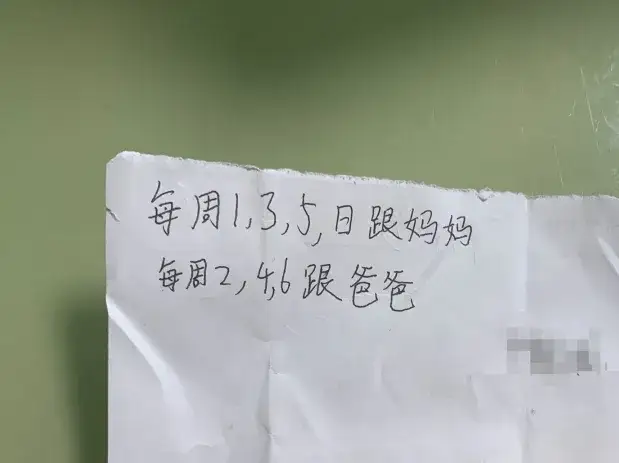 每周1,3,5,日跟妈妈
每周2,4,6跟爸爸